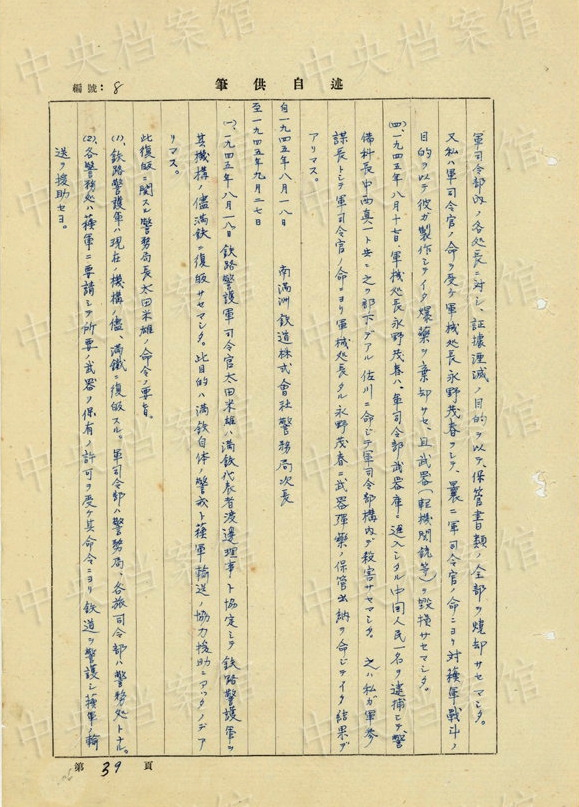 述自供筆
編號：8
軍司令部内ノ各処長ニ対シ、証據湮滅ノ目的ヲ以テ保管書類ノ全部ヲ燒却サセマシタ。
又私ハ軍司令官ノ命ヲ受ケ軍械処長永野茂春ヲシテ、曩ニ軍司令官ノ命ニヨリ対蘇軍戰斗ノ
目的ヲ以テ彼ガ製作シテイタ爆藥ヲ棄却サセ、且武器(軽機関銃等)ヲ毀損サセマシタ。
(四)、一九四五年八月十七日、軍械処長永野茂春ハ、軍司令部武器庫ニ進入シタル中国人民一名ヲ逮捕シテ、警
備科長中西真一ト共ニ之ヲ部下デアル佐川ニ命ジテ軍司令部構内デ殺害サセマシタ。之ハ私ガ軍参
謀長トシテ軍司令官ノ命ニヨリ軍械処長タル永野茂春ニ武器彈藥ノ保管出納ヲ命ジテイタ結果デ
アリマス。
自一九四五年八月一八日
至一九四五年九月二七日
南満洲鉄道株式會社警務局次長
(一)、一九四五年八月一八日鉄路警護軍司令官太田米雄ハ満鉄代表者渡邊理事ト協定シテ鉄路警護軍ヲ
其機構ノ儘満鉄ニ復皈サセマシタ。此目的ハ満鉄自体ノ警戒ト蘇軍輸送ノ協力援助ニアツタノデア
リマス。
此復皈ニ関スル警務局長太田米雄ノ命令ノ要旨。
(1)、鉄路警護軍ハ現在ノ機構ノ儘、満鐵ニ復皈スル。軍司令部ハ警務局、各旅司令部ハ警務処トナル。
(2)、各警務処ハ蘇軍ニ要請シテ所要ノ武器ノ保有ノ許可ヲ受ケ其命令ニヨリ鉄道ヲ警護シ蘇軍ノ輸
送ヲ援助セヨ。
第39頁
中央档案馆